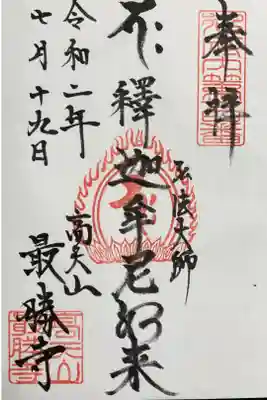 奉拝
弘法大師
釋迦牟尼如来
令和二年
七月十九日
高天山
最勝寺